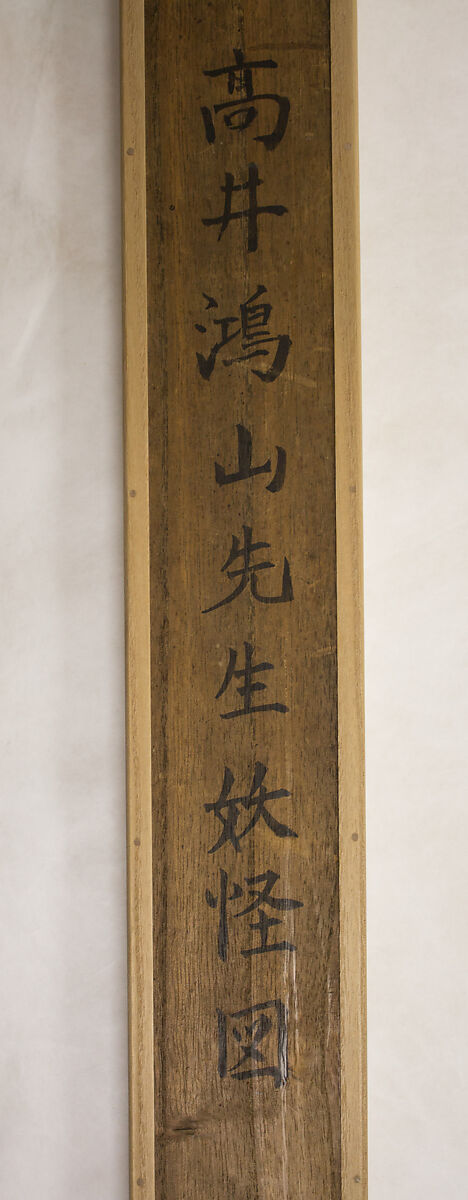 高井鴻山先生妖怪図